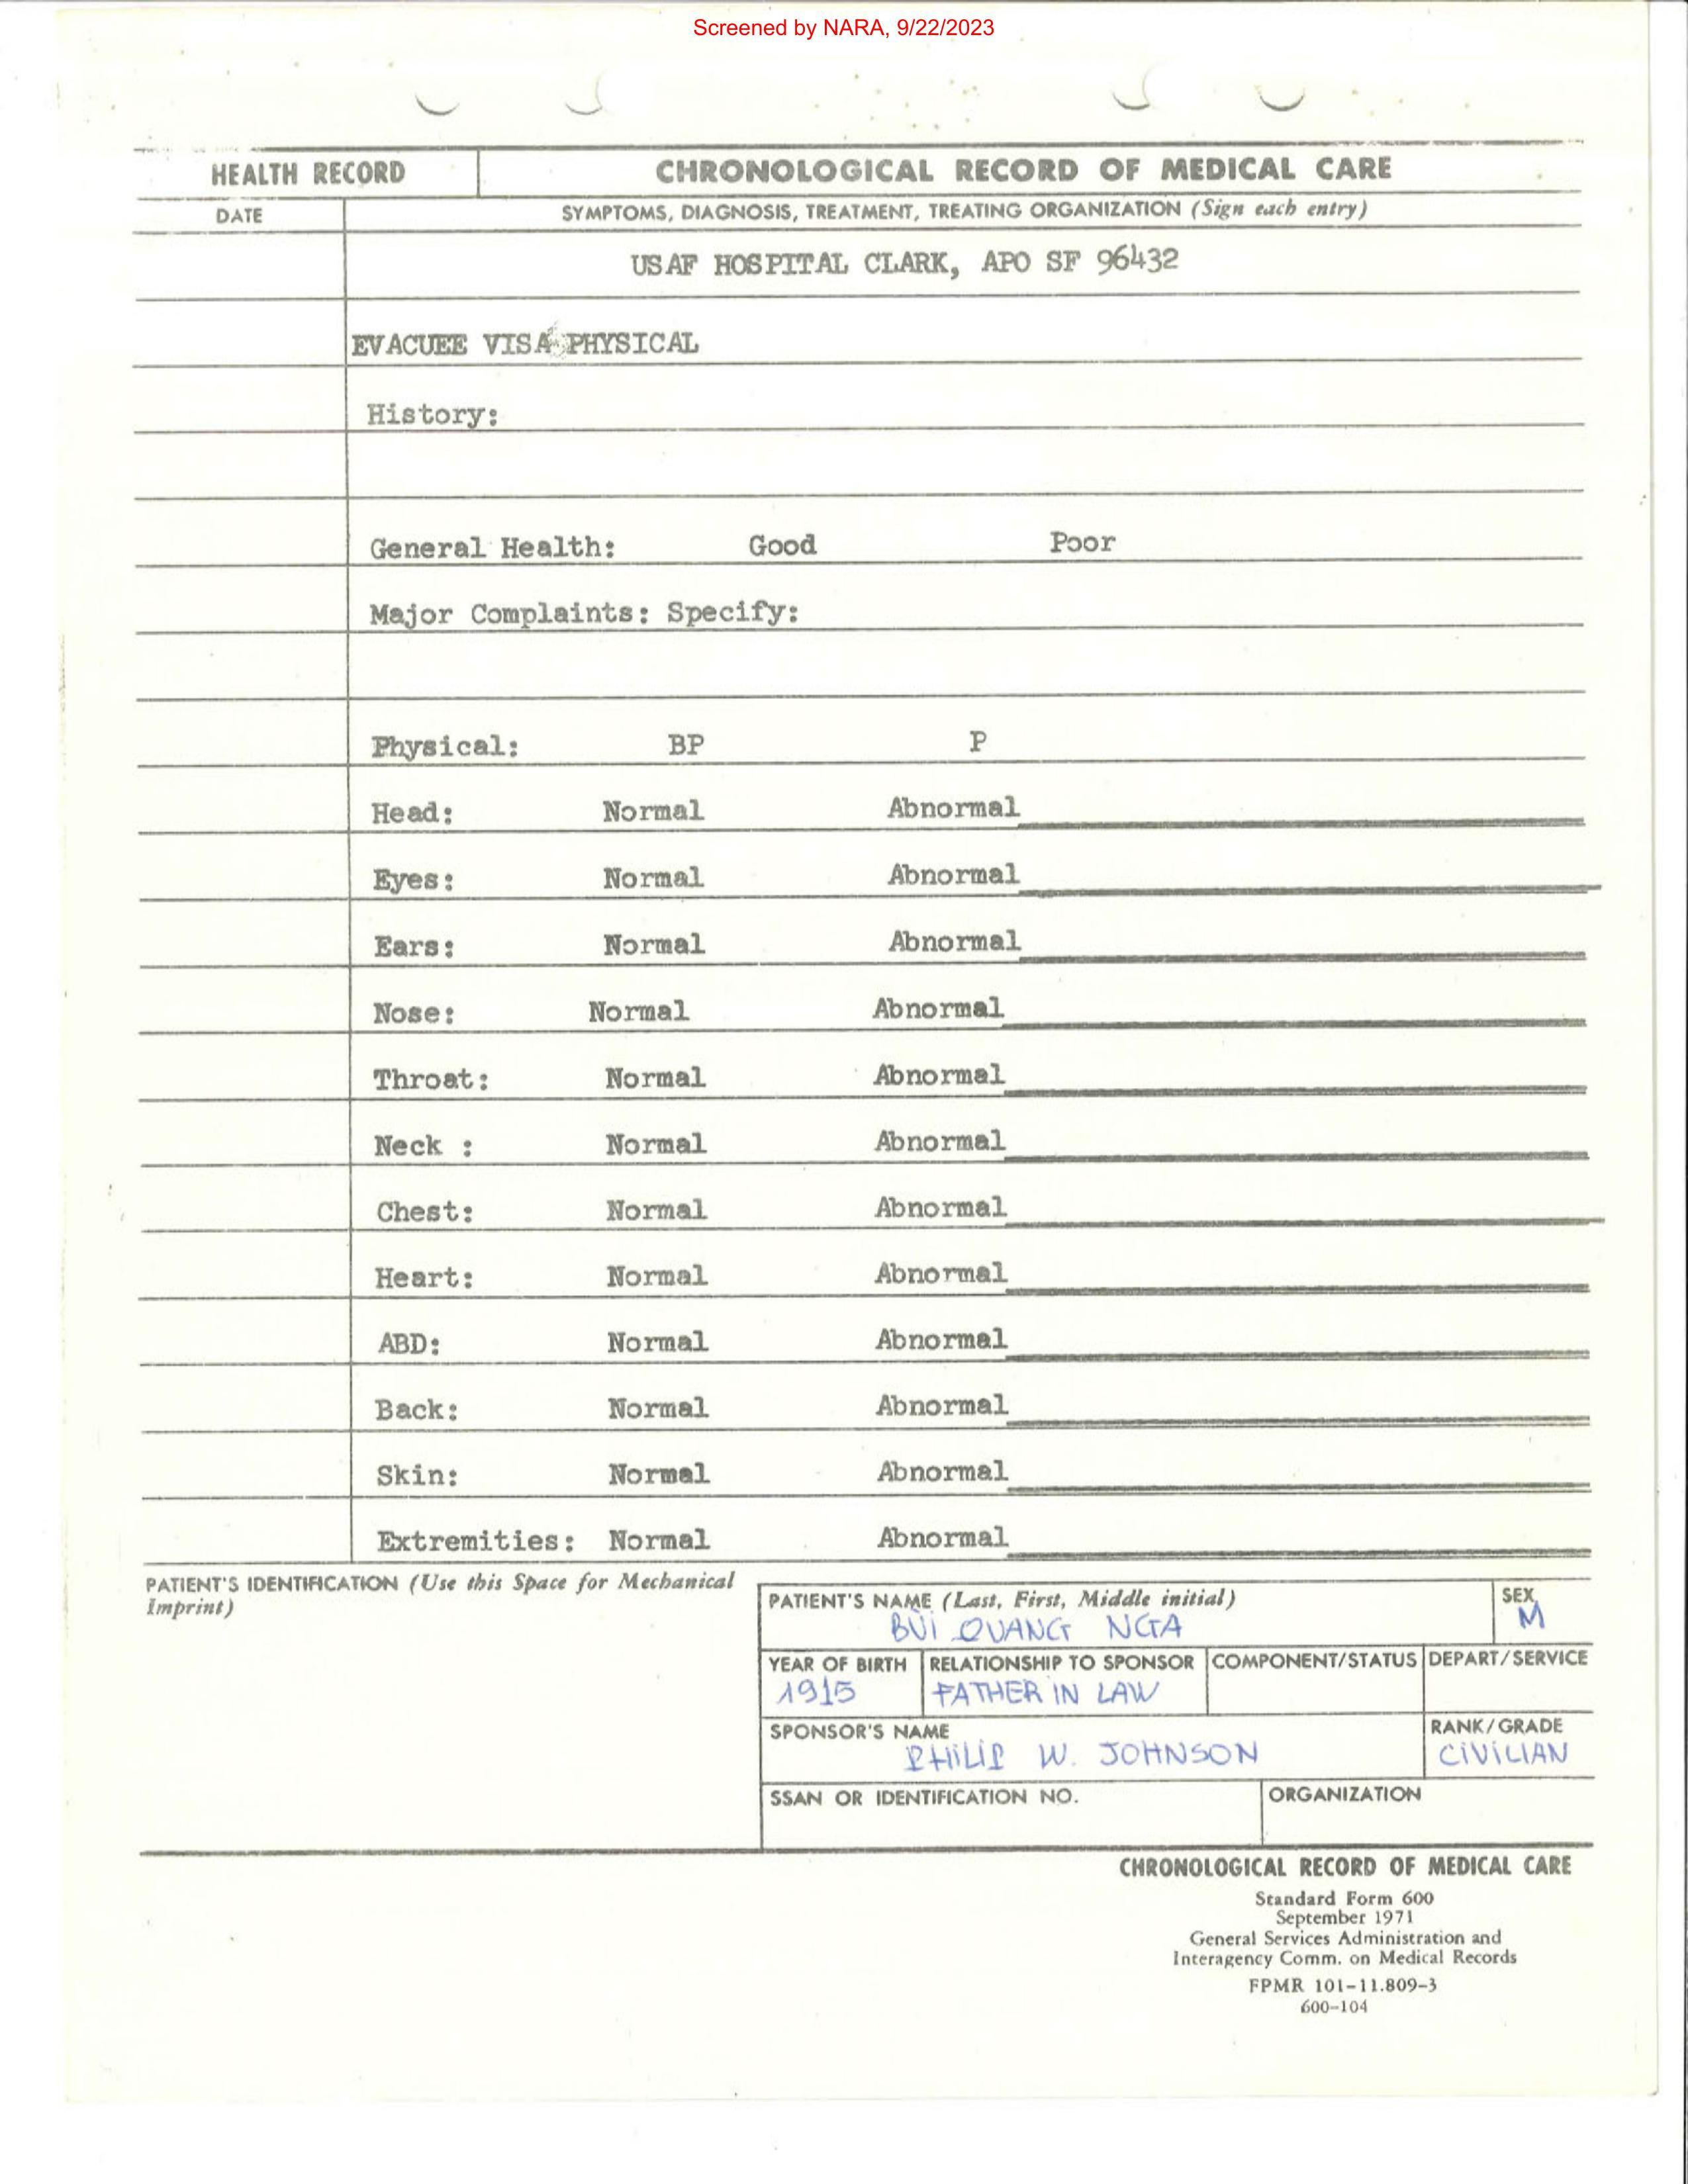 Screened by NARA, 9/22/2023
HEALTH RECORD CHRONOLOGICAL RECORD OF MEDICAL CARE
DATE SYMPTOMS, DIAGNOSIS, TREATMENT, TREATING ORGANIZATION (Sign each entry)
USAF HOSPITAL CLARK, APO SF 96432
EVACUEE VISA PHYSICAL
History:
General Health: Good Poor
Major Complaints: Specify:
Physical: BP P
Head: Normal Abnormal
Eyes: Normal Abnormal
Ears: Normal Abnormal
Nose: Normal Abnormal
Throat: Normal Abnormal
Neck : Normal Abnormal
Chest: Normal Abnormal
Heart: Normal Abnormal
ABD: Normal Abnormal
Back: Normal Abnormal
Skin: Normal Abnormal
Extremities: Normal Abnormal
PATIENT'S IDENTIFICATION (Use this Space for Mechanical
Imprint)
PATIENT'S NAME (Last, First, Middle initial) SEX
BÙI QUANG NGA M
YEAR OF BIRTH RELATIONSHIP TO SPONSOR COMPONENT/STATUS DEPART/SERVICE
1915 FATHER IN LAW
SPONSOR'S NAME RANK/GRADE
PHILIP W. JOHNSON CIVILIAN
SSAN OR IDENTIFICATION NO. ORGANIZATION
CHRONOLOGICAL RECORD OF MEDICAL CARE
Standard Form 600
September 1971
General Services Administration and
Interagency Comm. on Medical Records
FPMR 101-11.809-3
600-104